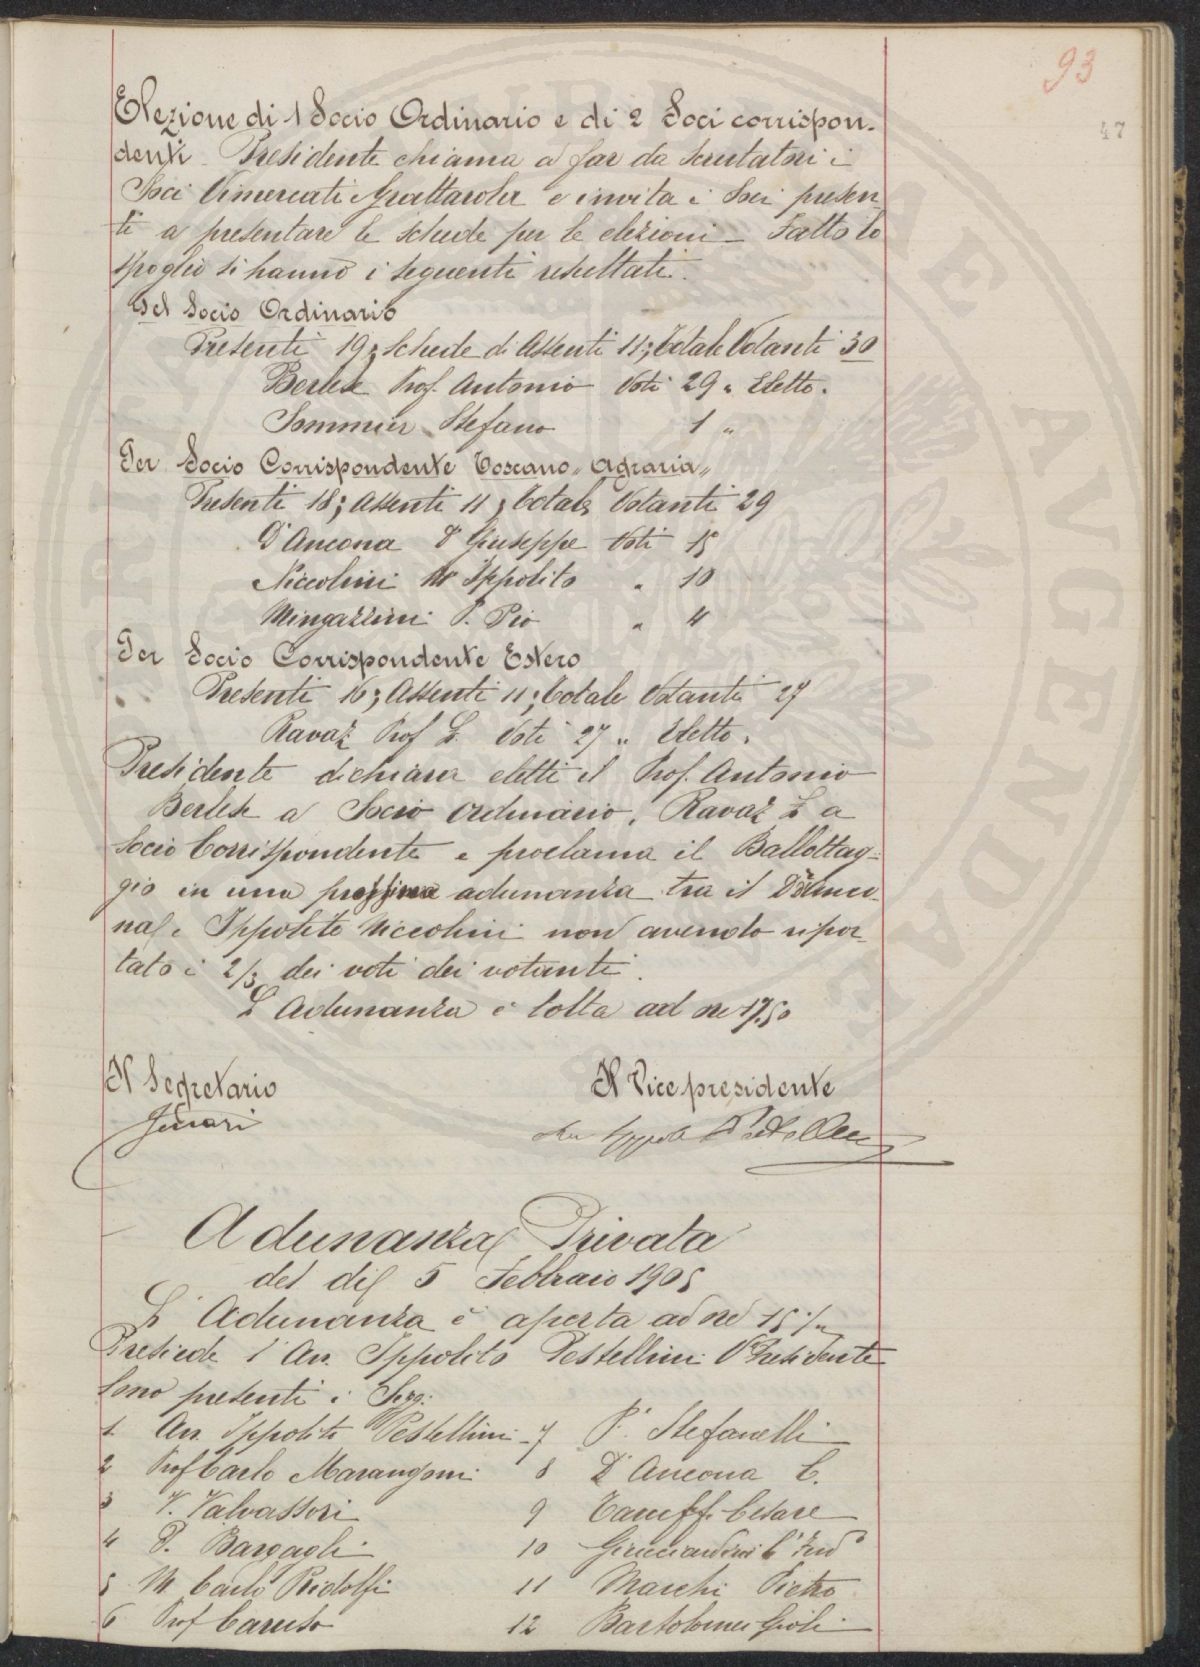 93
47
Elezione di 1 Socio Ordinario e di 2 Soci corrispon-
denti - Presidente chiama a far da scrutatori i
Soci Vimercati Grattarola e invita i Soci presen-
ti a presentare le schede per le elezioni - Fatto lo
spoglio si hanno i seguenti resultati.
Pel Socio Ordinario
Presenti 19; Schede di Assenti 11; Totale Votanti 30
Berlese Prof. Antonio Voti 29 " Eletto.
Sommier Stefano 1 "
Per Socio Corrispondente Toscano "Agraria"
Presenti 18; Assenti 11; Totale Votanti 29
D'Ancona Dr Giuseppe Voti 15
Niccolini Ippolito " 10
Mingazzini P. Pio " 4
Per Socio Corrispondente Estero
Presenti 16; Assenti 11; Totale Votanti 27
Ravaz Prof L. Voti 27 " Eletto.
Presidente dichiara eletti il Prof. Antonio
Berlese a Socio Ordinario, Ravaz L a
Socio Corrispondente e proclama il Ballottag=
gio in una prossima adunanza tra il D'Anco-
na e Ippolito Niccolini non avendo ripor-
tato i 2/3 dei voti dei votanti.
L'Adunanza è tolta ad ore 17.50
Il Segretario
Il Vice presidente
Ippolito Pestellini
Adunanza Privata
del dì 5 Febbraio 1905
L'Adunanza è aperta ad ore 15 1/2
Presiede l'Avv. Ippolito Pestellini V. Presidente
Sono presenti i Sigg:
1 Avv. Ippolito Pestellini - 7 P. Stefanelli
2 Prof Carlo Marangoni 8 D'Ancona C.
3 V. Valvassori 9 Taruffi Cesare
4 P. Bargagli 10 Guicciardini C.
5 M. Carlo Ridolfi 11 Marchi Pietro
6 Prof Caruso 12 Bartolomei Gioli